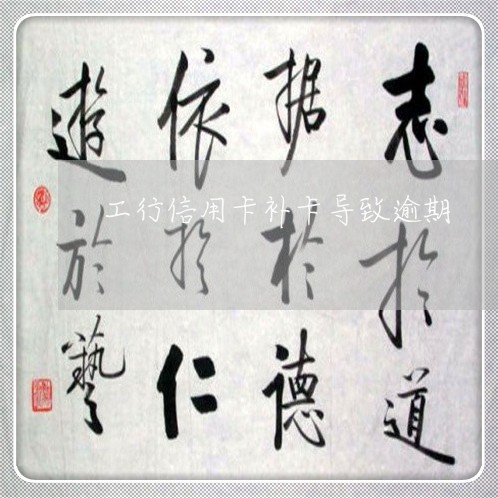 志於道
据於德
依於仁
遊於藝
工行信用卡补卡导致逾期